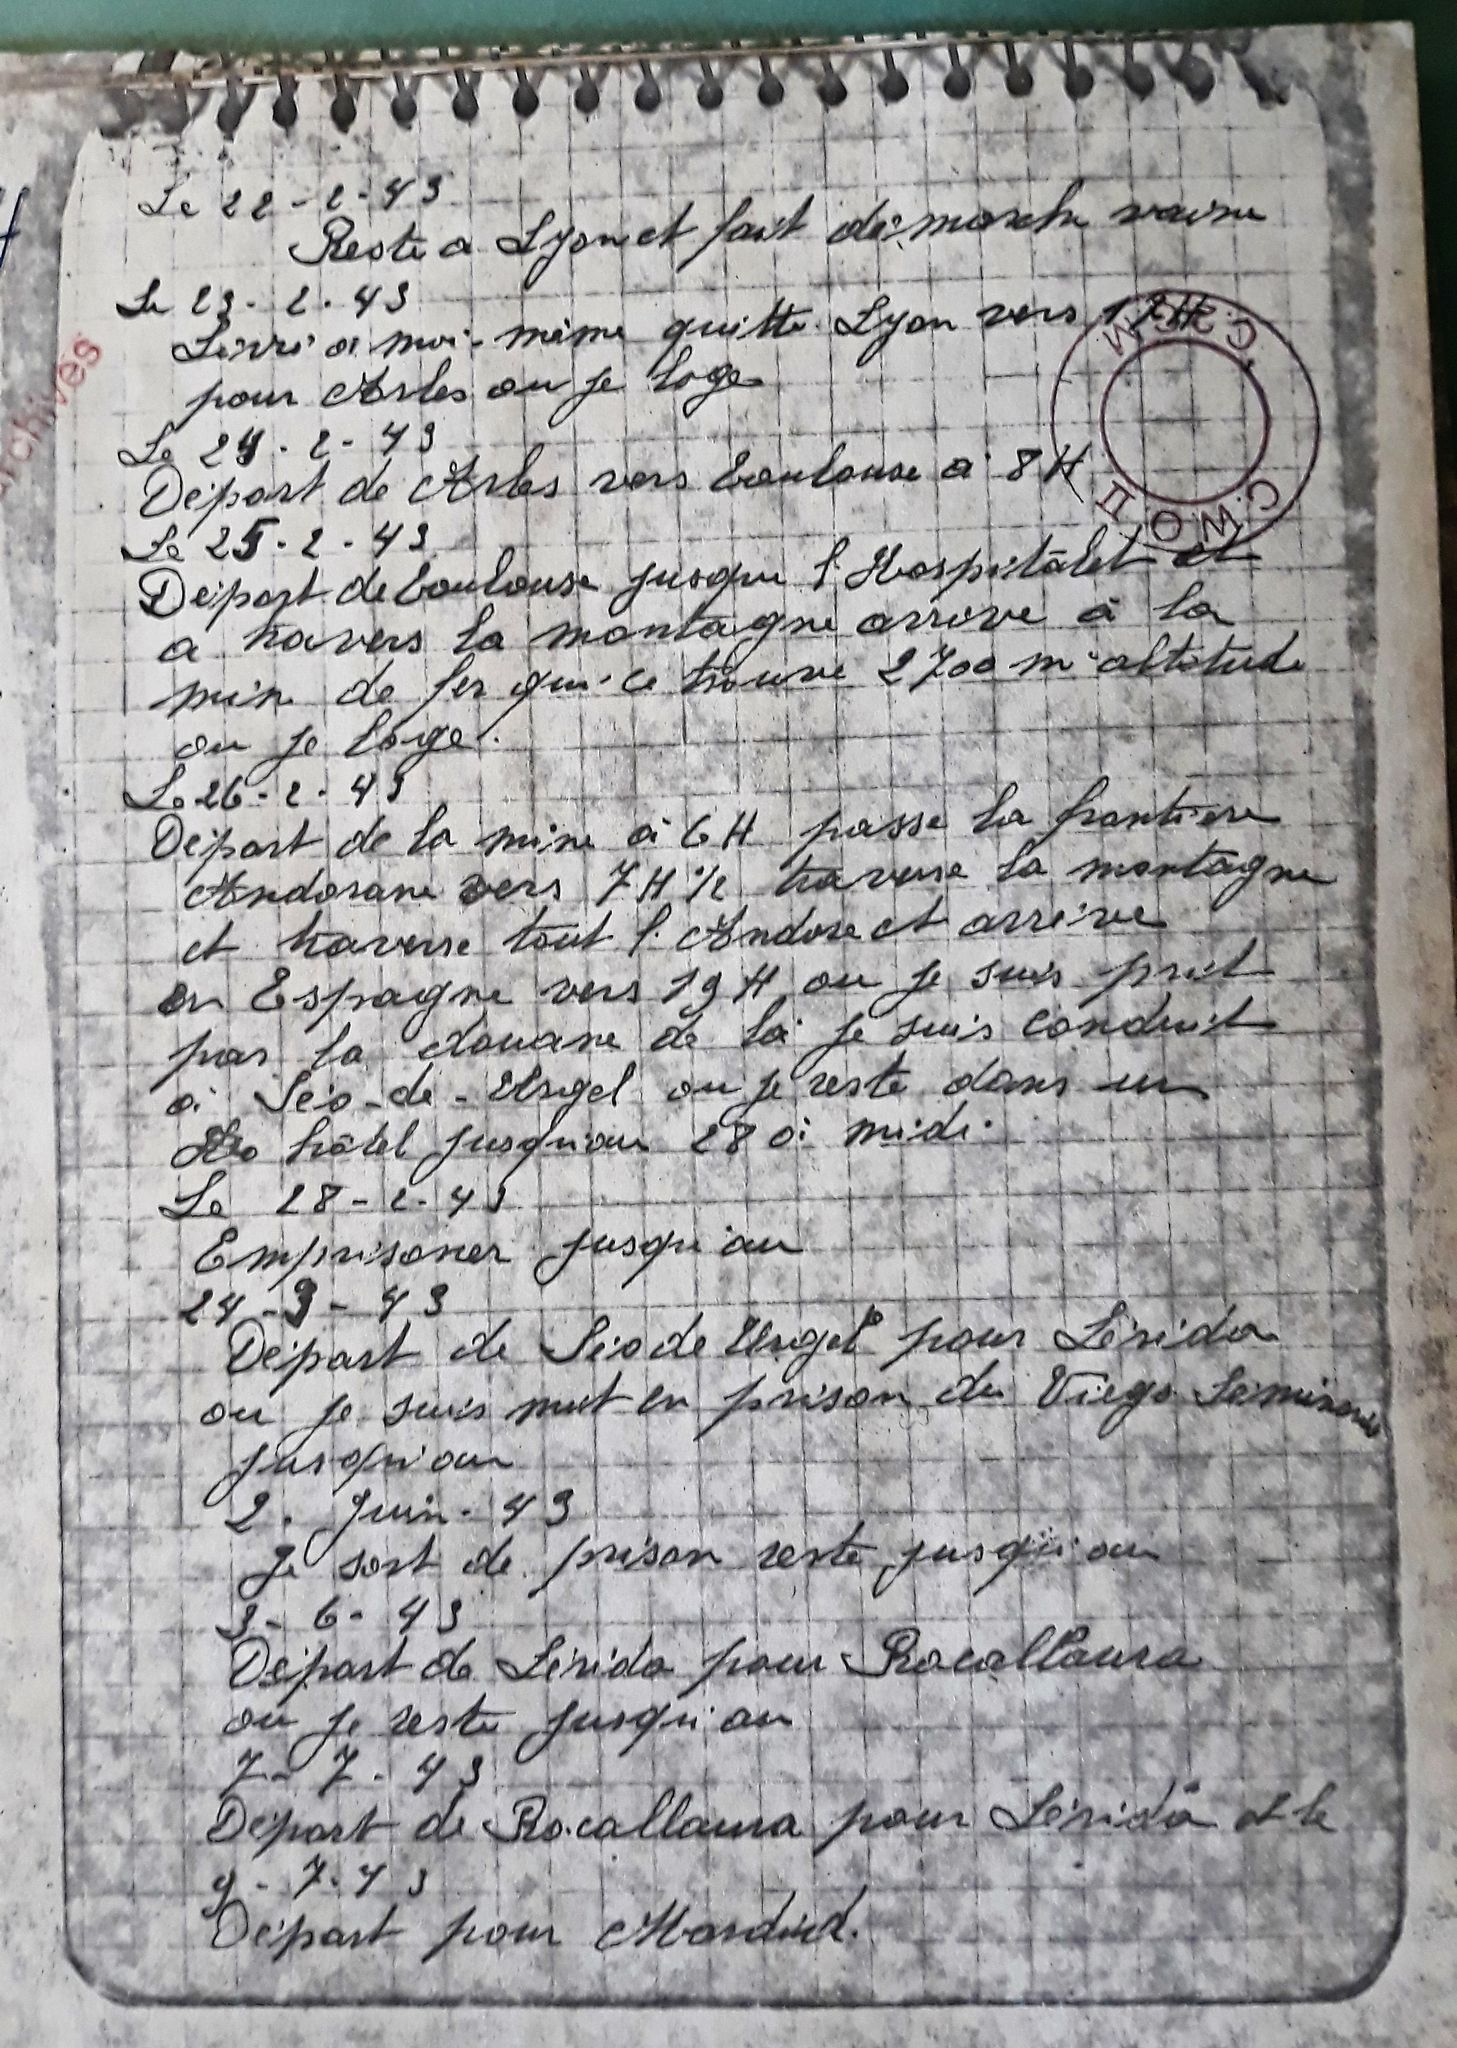 Le 22-2-43
Reste a Lyon et fait démarche vaine
Le 23-2-43
Livré a moi-même quitte Lyon vers 12H
pour Arles ou je loge
Le 24-2-43
Départ de Arles vers Toulouse à 8H
Le 25-2-43
Départ de Toulouse jusque l'Hospitâlet et
a travers la montagne arrive à la
mine de fer qui ce trouve 2700 m altitude
ou je loge.
Le 26-2-43
Départ de la mine à 6H passe la frontière
Andorane vers 7H½ traverse la montagne
et traverse tout l'Andore et arrive
en Espagne vers 19H ou je suis prit
par la douane de là je suis conduit
à Séo-de-Urgel ou je reste dans un
hôtel jusqu'au 28 à midi.
Le 28-2-43
Emprisoner jusqu'au
24-3-43
Départ de Séo de Urgel pour Lérida
ou je suis mit en prison du Viego Séminario
jusqu'au
2. Juin-43
Je sort de prison reste jusqu'au
3-6-43
Départ de Lérida pour Rocallaura
ou je reste jusqu'au
7-7-43
Départ de Rocallaura pour Lérida et le
9-7-43
Départ pour Mardid.
archives
C.W.O II